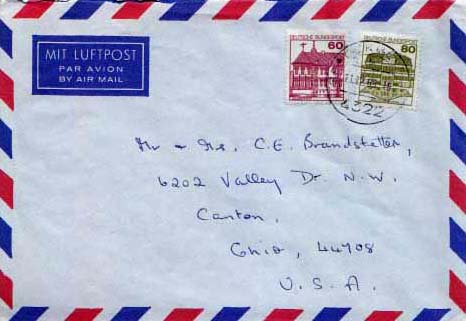 MIT LUFTPOST
PAR AVION
BY AIR MAIL
DEUTSCHE BUNDESPOST
60
DEUTSCHE BUNDESPOST
80
4322
Mr + Mrs. C.E. Brandstetter,
6202 Valley Dr. N.W.
Canton,
Ohio, 44708
U.S.A.